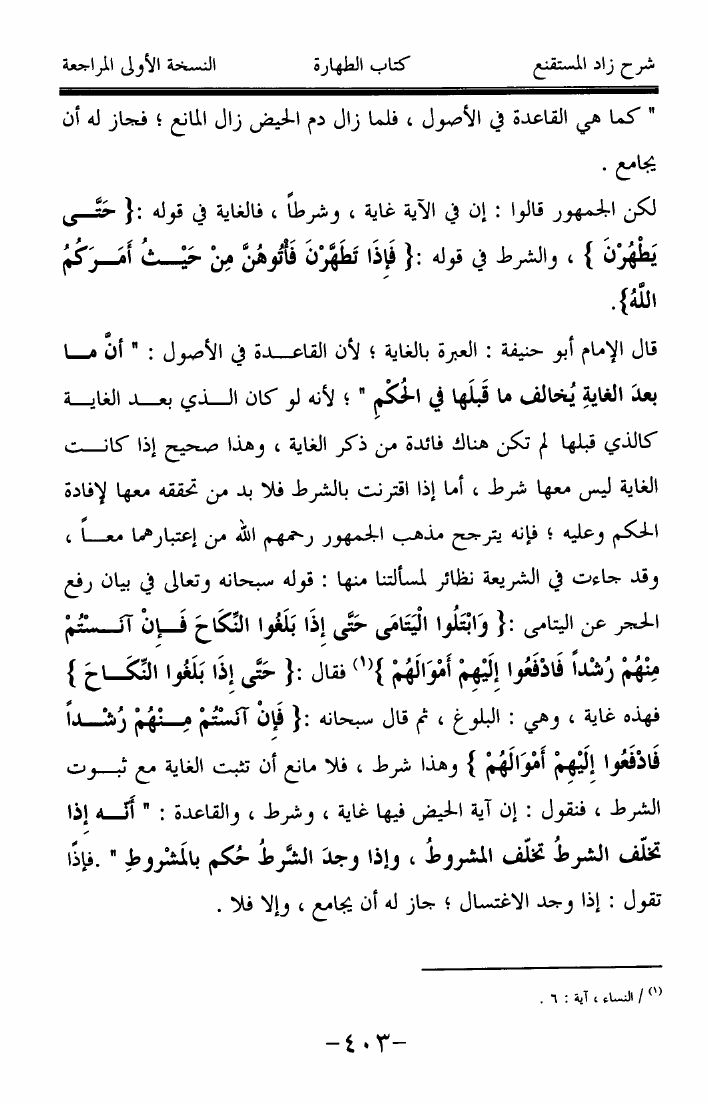 شرح زاد المستقنع كتاب الطهارة النسخة الأولى المراجعة
" كما هي القاعدة في الأصول ، فلما زال دم الحيض زال المانع ؛ فجاز له أن
يجامع .
لكن الجمهور قالوا : إن في الآية غاية ، وشرطاً ، فالغاية في قوله :{ حَتَّــى
يَطْهُرْنَ } ، والشرط في قوله :{ فَإِذَا تَطَهَّرْنَ فَأْتُوهُنَّ مِنْ حَيْــثُ أَمَــرَكُمُ
اللَّهُ}.
قال الإمام أبو حنيفة : العبرة بالغاية ؛ لأن القاعــدة في الأصول : " أنَّ مــا
بعدَ الغايةِ يُخالف ما قَبلَها في الحُكْمِ " ؛ لأنه لو كان الــذي بعــد الغايــة
كالذي قبلها لم تكن هناك فائدة من ذكر الغاية ، وهذا صحيح إذا كانــت
الغاية ليس معها شرط ، أما إذا اقترنت بالشرط فلا بد من تحققه معها لإفادة
الحكم وعليه ؛ فإنه يترجح مذهب الجمهور رحمهم الله من إعتبارهما معــاً ،
وقد جاءت في الشريعة نظائر لمسألتنا منها : قوله سبحانه وتعالى في بيان رفع
الحجر عن اليتامى :{ وَابْتَلُوا الْيَتَامَى حَتَّى إِذَا بَلَغُوا النِّكَاحَ فَــإِنْ آنَــسْتُمْ
مِنْهُمْ رُشْداً فَادْفَعُوا إِلَيْهِمْ أَمْوَالَهُمْ }(١) فقال :{ حَتَّى إِذَا بَلَغُوا النِّكَــاحَ }
فهذه غاية ، وهي : البلوغ ، ثم قال سبحانه :{ فَإِنْ آنَسْتُمْ مِــنْهُمْ رُشْــداً
فَادْفَعُوا إِلَيْهِمْ أَمْوَالَهُمْ } وهذا شرط ، فلا مانع أن تثبت الغاية مع ثبــوت
الشرط ، فنقول : إن آية الحيض فيها غاية ، وشرط ، والقاعدة : " أنّــه إذا
تخلّف الشرطُ تخلّف المشروطُ ، وإذا وجدَ الشَّرطُ حُكم بالمَشْروطِ " .فإذًا
تقول : إذا وجد الاغتسال ؛ جاز له أن يجامع ، وإلا فلا .
(١) / النساء ، آية : ٦ .
-٤٠٣-